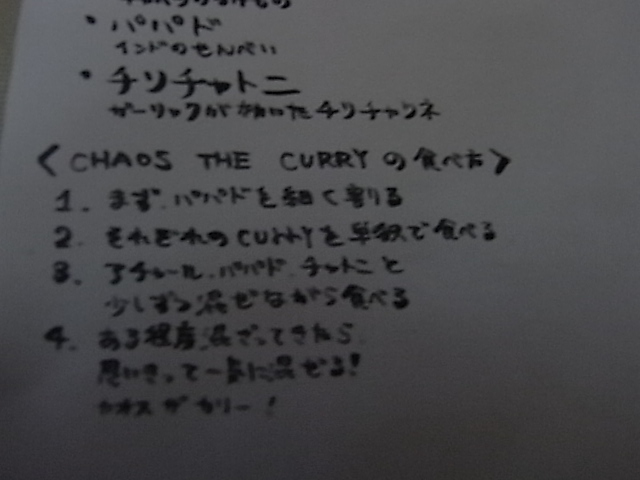 ・パパド
インドのせんべい
・チリチャトニ
ガーリックが効いたチリチャツネ
〈CHAOS THE CURRYの食べ方〉
1. まず、パパドを細く割る
2. それぞれのCURRYを単独で食べる
3. アチャール、パパド、チャトニと
少しずつ混ぜながら食べる
4. ある程度混ざってきたら
思いきって一気に混ぜる!
カオス ザ カリー!